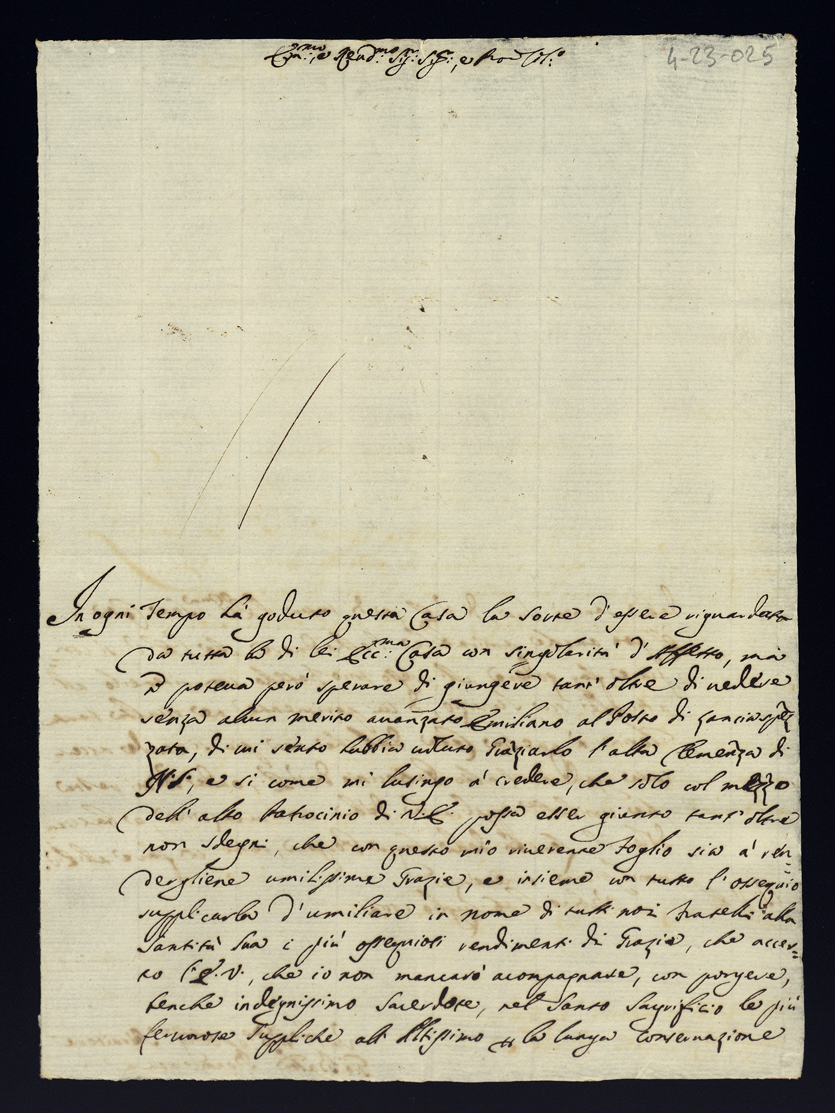 Em.mo, e Rend.mo Sig: Sig:, e Pron Col:o
4-23-025
In ogni Tempo há goduto questa Casa la sorte d'essere riguardata
da tutta la di lei Ecc:ma Casa con singolarità d'Affetto, mà
poteva però sperare di giungere tant'oltre di vedere
senza alcun merito avanzato Emiliano al Posto di Lanciaspez
zata, di cui sento l'abbia voluto Graziarlo l'alta Clemenza di
N.S., e si come mi lusingo à credere, che solo col mezzo
dell'alto Patrocinio di V.E. possa esser giunto tant'oltre
non sdegni, che con questo mio riverente foglio sia à ren=
dergliene umilissime Grazie, e insieme con tutto l'ossequio
supplicarla d'umiliare in nome di tutti noi Fratelli alla
Santità Sua i più ossequiosi rendimenti di Grazie, che accer=
to l'E.V., che io non mancarò acompagnare, con porgere,
benche indegnissimo Sacerdote, nel Santo Sagrificio le più
fervorose Suppliche all'Altissimo la lunga Conservazione